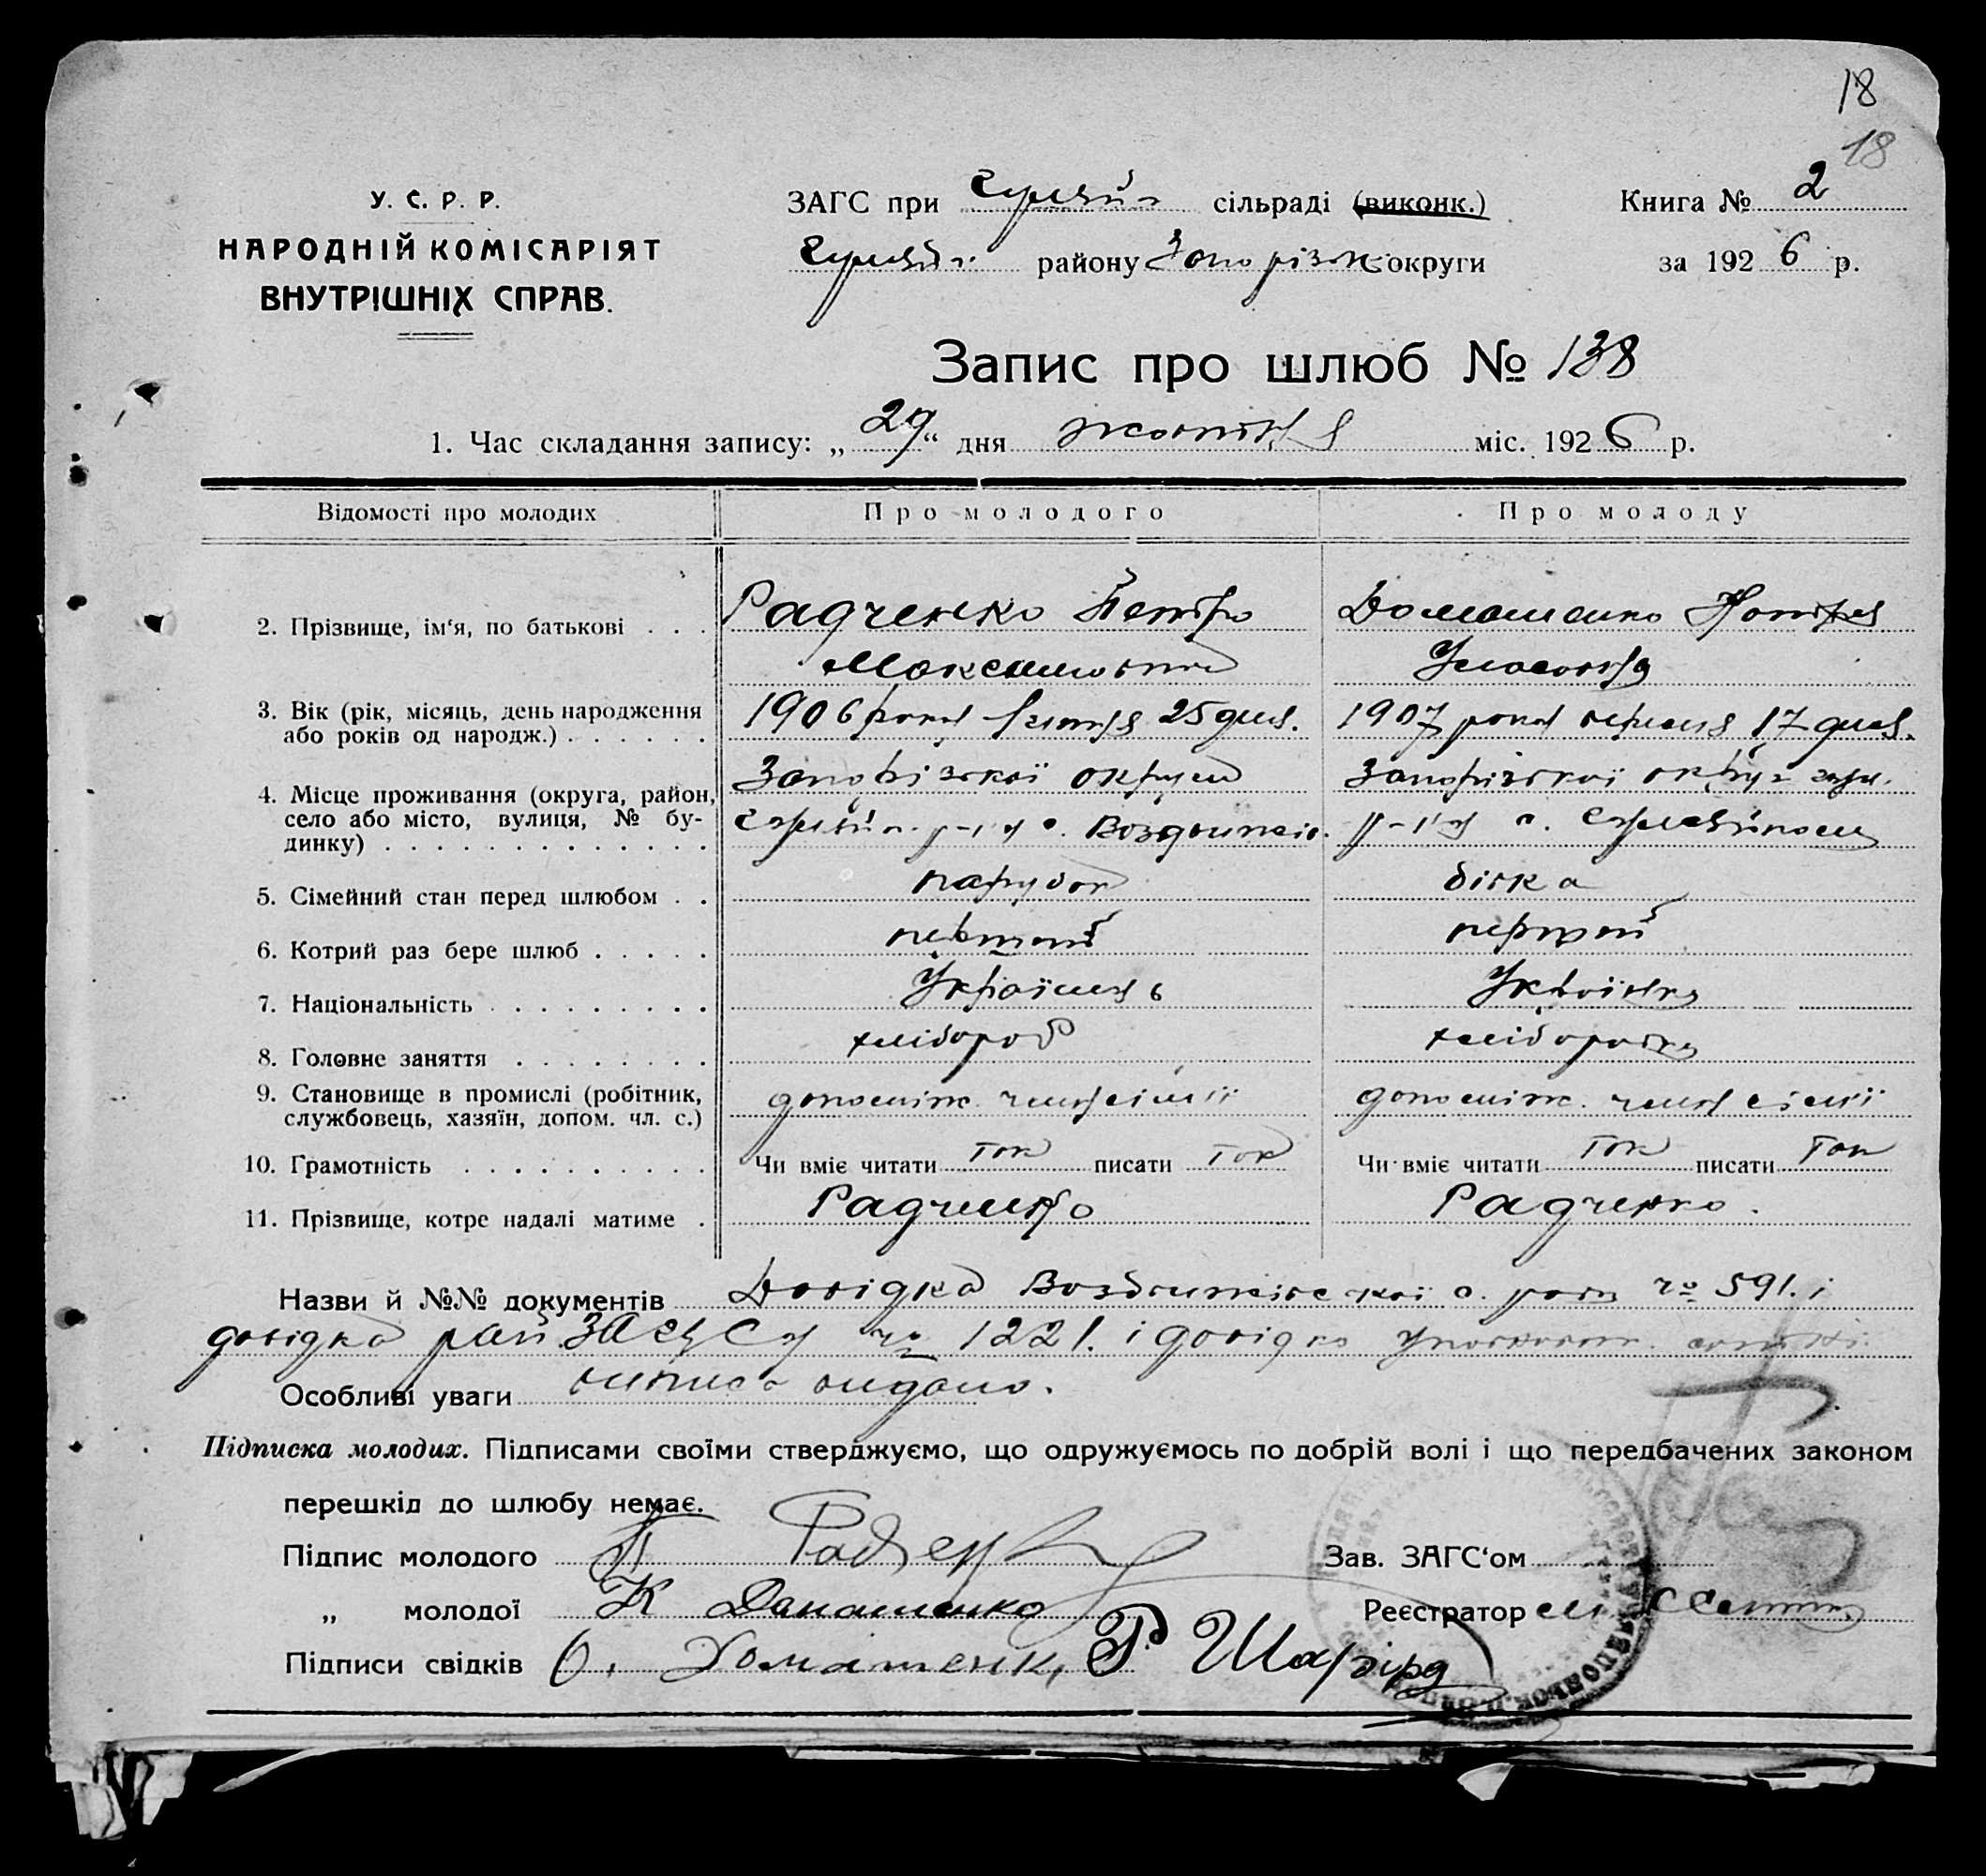 18
18
У. С. Р. Р.
НАРОДНІЙ КОМІСАРІЯТ
ВНУТРІШНІХ СПРАВ.
ЗАГС при Гуляйп сільраді (виконк.)
Гуляйп. району Запорізьк округи
Книга № 2
за 1926 р.
Запис про шлюб № 138
1. Час складання запису: „29“ дня жовтня міс. 1926 р.
Відомості про молодих
Про молодого
Про молоду
2. Прізвище, ім‘я, по батькові . . .
Радченко Петро
Максимович
Домашенко
3. Вік (рік, місяць, день народження
або років од народж.) . . . . . .
1906 року 25 дня.
1907 року 17 дня.
4. Місце проживання (округа, район,
село або місто, вулиця, № бу-
динку) . . . . . . . . . . . . .
Запорізької округи
Гуляйп. р-ну с. Воздвижів.
Запорізької округи гуляй.
р-ну с. Гуляйполя
5. Сімейний стан перед шлюбом . .
парубок
дівка
6. Котрий раз бере шлюб . . . . .
перший
перший
7. Національність . . . . . . . . .
Українець
Українка
8. Головне заняття . . . . . . . .
хлібороб
хліборобка
9. Становище в промислі (робітник,
службовець, хазяїн, допом. чл. с.)
допоміж. член сім'ї
допоміж. член сім'ї
10. Грамотність . . . . . . . . . .
Чи вміє читати так писати так
Чи вміє читати так писати так
11. Прізвище, котре надалі матиме .
Радченко
Радченко.
Назви й №№ документів Довідка Воздвижівської с. ради № 591. і
довідка рай ЗАГСу № 1221. і довідка
Особливі уваги виписа видано.
Підписка молодих. Підписами своїми стверджуємо, що одружуємось по добрій волі і що передбачених законом
перешкід до шлюбу немає.
Підпис молодого П Радченко
Зав. ЗАГС‘ом
„ молодої К Домашенко
Реєстратор
Підписи свідків О. Домашенко, Р Шапіро